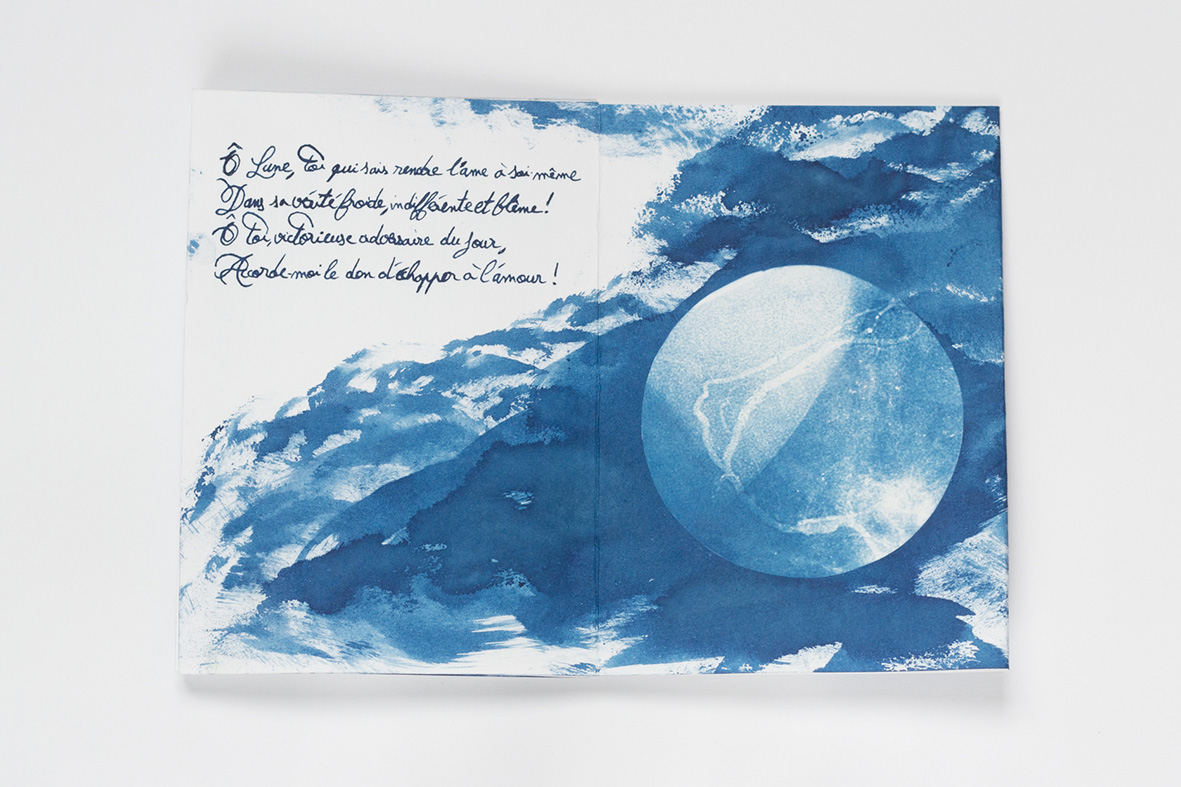 Ô Lune, Toi qui sais rendre l'ame à soi-même
Dans sa vérité froide, indifférente et blême !
Ô Toi, victorieuse adversaire du Jour,
Accorde-moi le don d'échapper à l'amour !